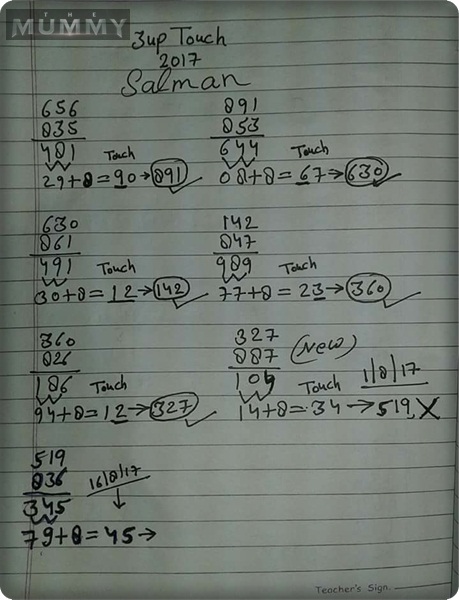 THE
MUMMY
3up Touch
2017
Salman
656
835
481 Touch
29+8=90→891
891
853
644 Touch
08+8=67→630
630
861
491 Touch
30+8=12→142
142
847
989 Touch
77+8=23→360
360
826
186 Touch
94+8=12→327
327
887 (New)
104 Touch 1/8/17
14+8=34→519 X
519
836 16/8/17
345 ↓
79+8=45→
Teacher's Sign.